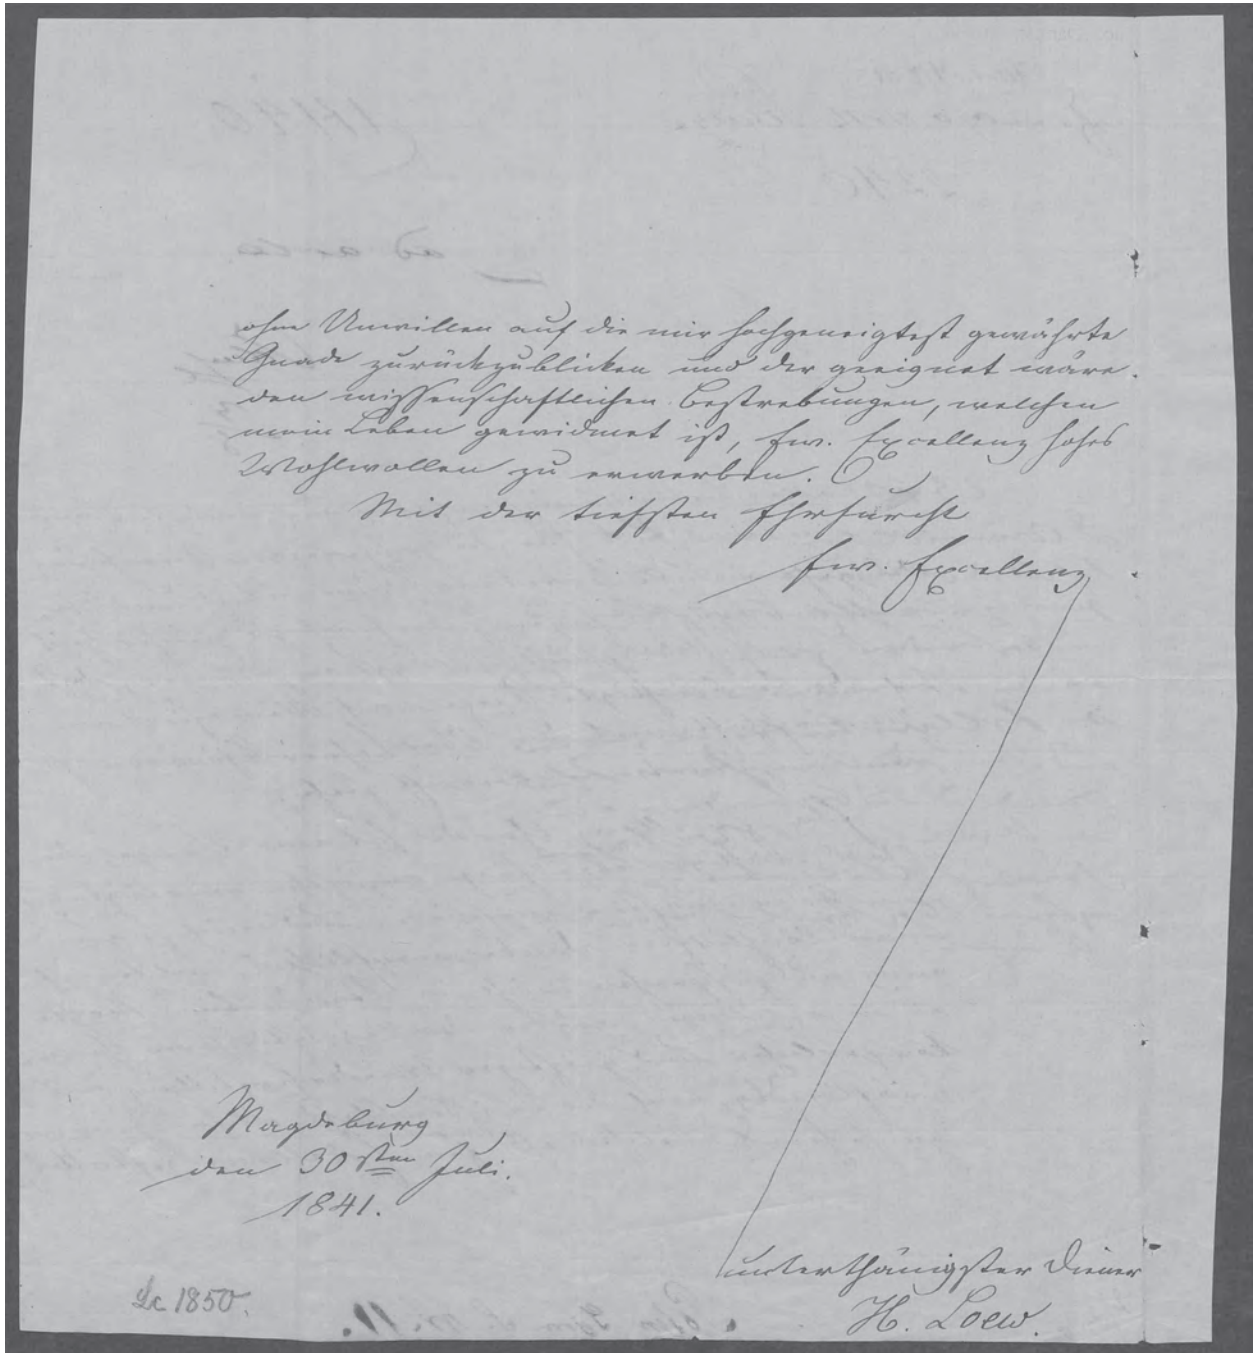 ohne Unwillen auf die mir hochgeneigtest gewährte
Gnade zurückzublicken und der geeignet wäre.
den wissenschaftlichen Bestrebungen, welchen
mein Leben gewidmet ist, Ew. Excellenz hohes
Wohlwollen zu erwerben.
Mit der tiefsten Ehrfurcht
Ew. Excellenz
Magdeburg
den 30sten Juli.
1841.
unterthänigster Diener
H. Loew.
Lc 1850.